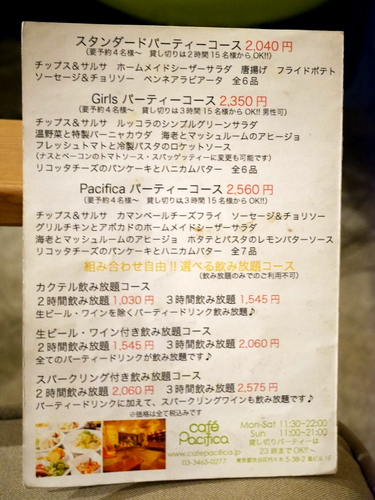 スタンダードパーティーコース 2,040 円
(要予約4名様〜 貸し切りは2時間 15名様からOK!!)
チップス＆サルサ ホームメイドシーザーサラダ 唐揚げ フライドポテト
ソーセージ＆チョリソー ペンネアラビアータ 全6品
Girls パーティーコース 2,350 円
(要予約4名様〜 貸し切りは3時間 15名様からOK!! 男性可)
チップス＆サルサ ルッコラのシンプルグリーンサラダ
温野菜と特製バーニャカウダ 海老とマッシュルームのアヒージョ
フレッシュトマトと冷製パスタのロケットソース
(ナスとベーコンのトマトソース・スパッゲッティーに変更も可能です)
リコッタチーズのパンケーキとハニカムバター 全6品
Pacifica パーティーコース 2,560 円
(要予約4名様〜 貸し切りは3時間 15名様からOK!!)
チップス＆サルサ カマンベールチーズフライ ソーセージ＆チョリソー
グリルチキンとアボカドのホームメイドシーザーサラダ
海老とマッシュルームのアヒージョ ホタテとパスタのレモンバターソース
リコッタチーズのパンケーキとハニカムバター 全7品
組み合わせ自由!!選べる飲み放題コース
(飲み放題のみでのご利用不可)
カクテル飲み放題コース
2時間飲み放題 1,030 円 3時間飲み放題 1,545 円
生ビール・ワインを除くパーティードリンク飲み放題♪
生ビール・ワイン付き飲み放題コース
2時間飲み放題 1,545 円 3時間飲み放題 2,060 円
全てのパーティードリンクが飲み放題です♪
スパークリング付き飲み放題コース
2時間飲み放題 2,060 円 3時間飲み放題 2,575 円
パーティードリンクに加えて、スパークリングワインも飲み放題です♪
※価格は全て税込みです
café
Pacifica
www.cafepacifica.jp
03-3465-0277
Mon-Sat 11:30-22:00
Sun 11:00-21:00
貸し切りパーティーは
23時までOK!!〜